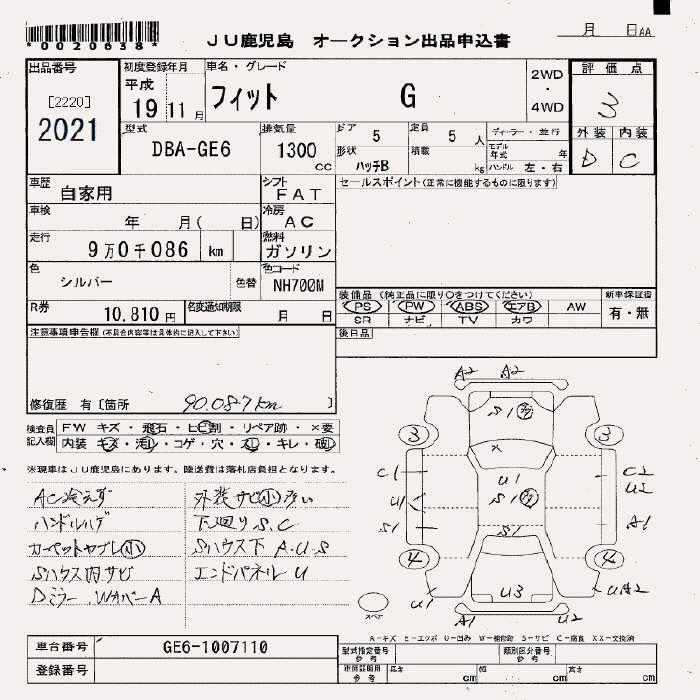 *0020638*
JU鹿児島 オークション出品申込書
月 日AA
出品番号
[2220]
2021
初度登録年月
平成
19 11 月
車名・グレード
フィット G
2WD
・
4WD
評価点
3
外装 内装
D C
型式
DBA-GE6
排気量
1300
cc
ドア 5
形状
ハッチB
定員 5 人
積載 kg
ディーラー・並行
モデル年式 年
ハンドル 左・右
車歴
自家用
シフト
FAT
車検
年 月( 日)
冷房
AC
走行
9万0千086 km
燃料
ガソリン
色
シルバー
色替
色コード
NH700M
R券
10.810 円
名変通知期限
月 日
セールスポイント(正常に機能するものに限ります)
装備品 (純正品に限り〇をつけてください)
PS PW ABS エアB AW
SR ナビ TV カワ
新車保証書
有・無
後日品
注意事項申告欄(不具合内容等は具体的に記入して下さい)
修復歴 有〔箇所 90.087km 〕
検査員記入欄
FW キズ・飛石・ヒビ割・リペア跡・×要
内装 キズ・汚れ・コゲ・穴・スレ・キレ・破れ
※現車はJU鹿児島にあります。陸送費は落札店負担となります。
AC冷えず
ハンドルハゲ
カーペットヤブレ小
Sハウス内サビ
Dミラー、WカバーA
外装サビ小多い
下廻りS.C
Sハウス下A.U.S
エンドパネルU
A2 A2
S1 多
3 3
C1 U1 C2
U2
U1 S1 多
S1 S1 A1
4 4
U1 U3 UA2
A1 U2
スペア
A-キズ E-エクボ U-凹み W-補修跡 S-サビ C-腐食 XX-交換済
車台番号 GE6-1007110
登録番号
型式指定番号
参考
類別区分番号
参考
車両諸元
参考
長さ cm 幅 cm 高さ cm